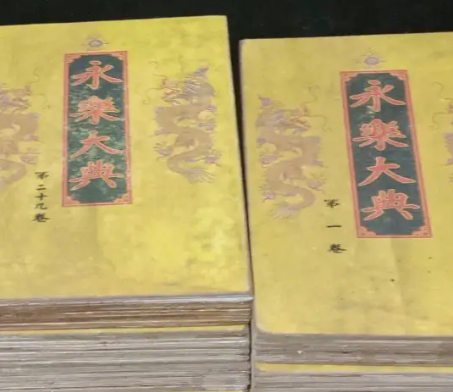 永樂大典
第二十九卷
永樂大典
第一卷